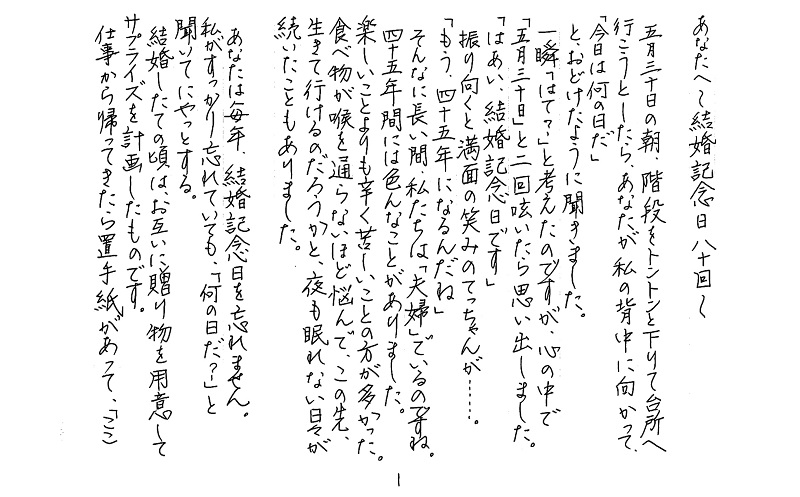 あなたへ～結婚記念日八十回～
五月三十日の朝、階段をトントンと下りて台所へ
行こうとしたら、あなたが私の背中に向かって、
「今日は何の日だ」
と、おどけたように聞きました。
一瞬「はて？」と考えたのですが、心の中で
「五月三十日」と二回呟いたら思い出しました。
「はあい、結婚記念日です」
振り向くと満面の笑みのてっちゃんが……。
「もう、四十五年になるんだね」
そんなに長い間、私たちは「夫婦」でいるのですね。
四十五年間には色んなことがありました。
楽しいことよりも辛く苦しいことの方が多かった。
食べ物が喉を通らないほど悩んで、この先、
生きて行けるのだろうかと、夜も眠れない日々が
続いたこともありました。
あなたは毎年、結婚記念日を忘れません。
私がすっかり忘れていても、「何の日だ？」と
聞いてにやっとする。
結婚したての頃は、お互いに贈り物を用意して
サプライズを計画したものです。
仕事から帰ってきたら置手紙があって、「ここ
1